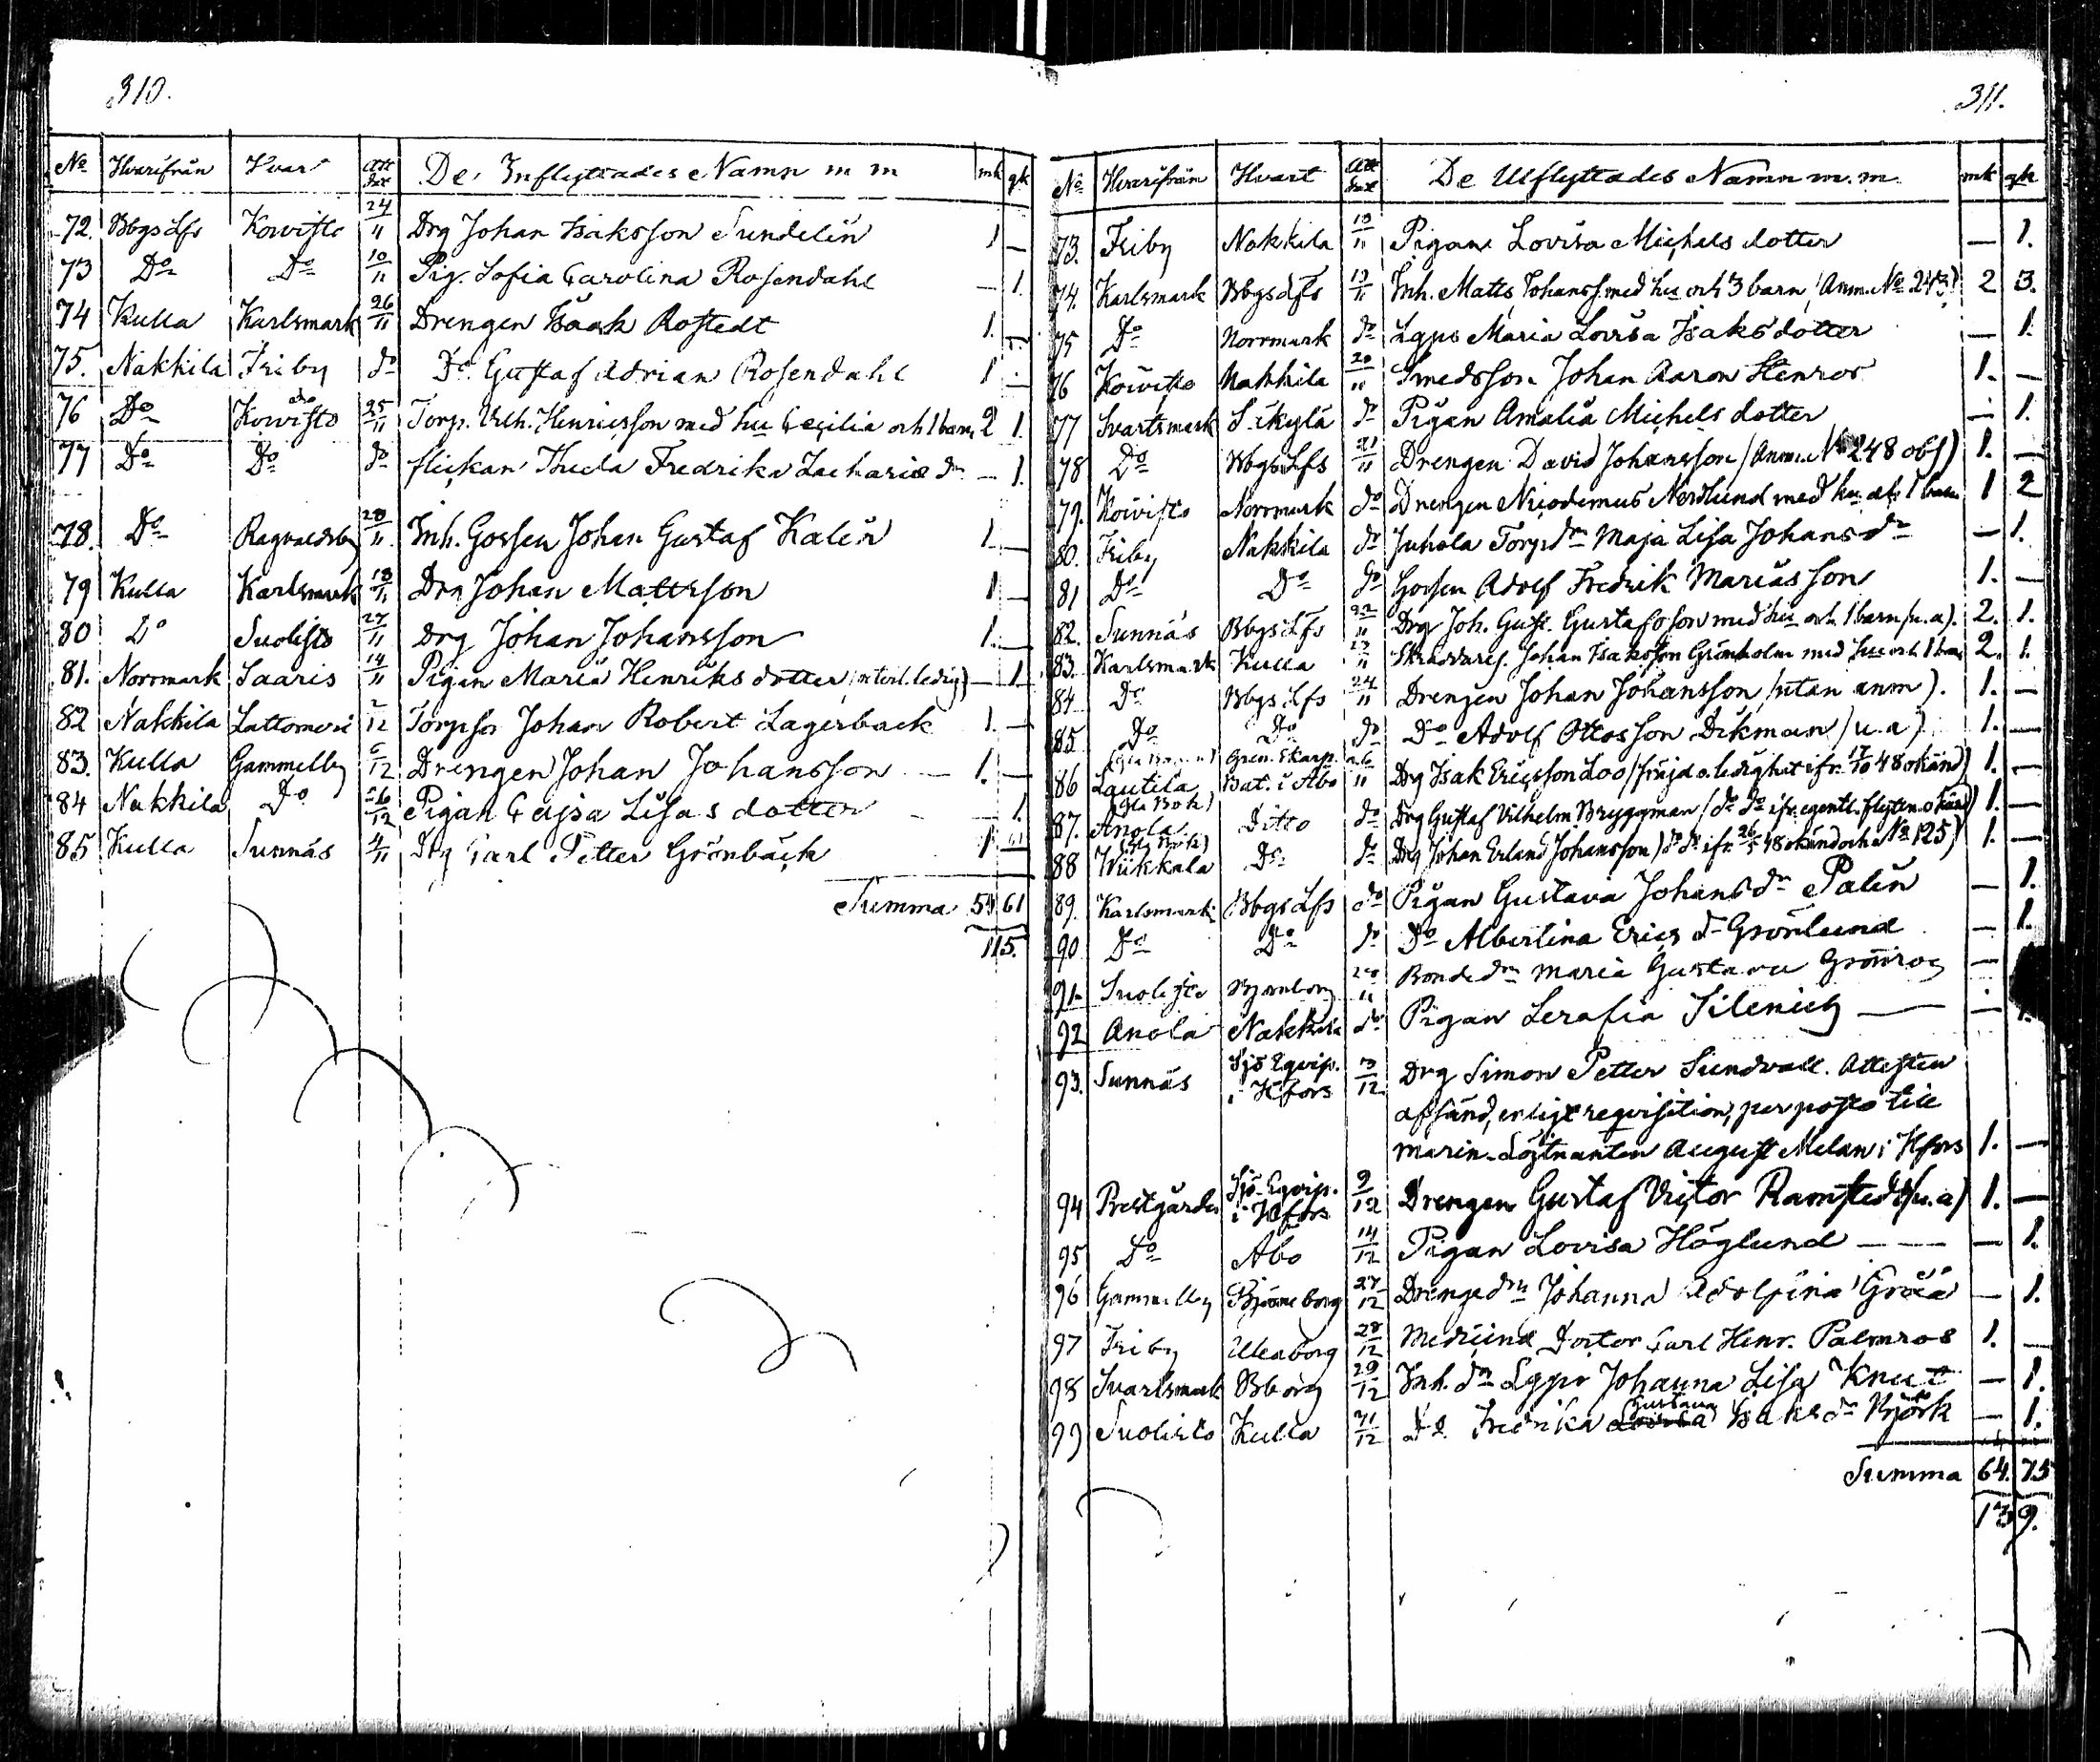 310.
No Hvarifrån Hvar Att Dat De Inflyttades Namn m m mk qk
72. Bbgs Lfs Koivisto 24/11 Drg Johan Isaksson Sundelin 1 —
73 Do Do 10/11 Pig. Sofia Carolina Rosendahl — 1.
74 Kulla Karlsmark 26/11 Drengen Isaak Rostedt 1. —
75. Nakkila Friby do Do Gustaf Adrian Rosendahl 1 —
76 Do Koivisto 25/11 Torp. Vilh. Henricsson med hu Cecilia och 1 barn 2 1.
77 Do Do do flickan Thecla Fredrika Zachariæ dr — 1.
78. Do Ragvaldsby 28/11 Inh. Gossen Johan Gustaf Kalén 1 —
79 Kulla Karlsmark 18/11 Drg Johan Mattsson 1 —
80 Do Suolisto 27/11 Drg Johan Johansson 1. —
81. Norrmark Saaris 14/11 Pigan Maria Henriksdotter — 1
82 Nakkila Lattomeri 2/12 Torpson Johan Robert Lagerback 1. —
83. Kulla Gammelby 6/12 Drengen Johan Johansson — 1. —
84 Nakkila Do 26/12 Pigan Cajsa Lisas dotter — 1
85 Kulla Sunnäs 4/11 Drg Carl Petter Grönbäck 1 —
Summa 54 61
115.
311.
No Hvarifrån Hvart Att Dat De Utflyttades Namn m. m. mk qk
73. Friby Nakkila 13/11 Pigan Lovisa Michelsdotter — 1.
74. Karlsmark Bbgs Lfs 13/11 Inh. Matts Johanss. med hu och 3 barn (Anm. No 243) 2 3.
75 Do Norrmark do Lgps Maria Lovisa Isaksdotter — 1.
76 Koivisto Nakkila 20/11 Smedsson Johan Aaron Stenros 1. —
77 Svartsmark Säkylä do Pigan Amalia Michelsdotter — 1.
78 Do Bbgs Lfs 21/11 Drengen David Johansson (Anm. No 248 obs) 1. —
79. Koivisto Norrmark do Drengen Nicodemus Nordlund med hu och 1 barn 1 2
80. Friby Nakkila do Juhola Torp dr Maja Lisa Johans dr — 1.
81 Do Do do Gossen Adolf Fredrik Mariasson 1. —
82. Sunnäs Bbgs Lfs 22/11 Drg Joh. Gust. Gustafsson med hu och 1 barn (u.a). 2. 1.
83. Karlsmark Kulla 23/11 Johan Isaksson Grönholm med hu och 1 barn 2. 1.
84 Do Bbgs Lfs 24/11 Drengen Johan Johansson (utan anm). 1. —
85 Do Do do Do Adolf Ottosson Dikman (u.a) 1. —
86 Lautila Gren. Skarp. Bat. i Åbo 26/11 Drg Isak Ericsson Loo (fräjd o. ledighet ifr. 17/10 48 okänd) 1. —
87. Anola Ditto do Drg Gustaf Vilhelm Bryggman (do do ifr. egentl. flytten. okänd) 1. —
88 Wiikkala Do do Drg Johan Erland Johansson (do do ifr. 26/5 48 okänd och No 125) 1. —
89. Karlsmark Bbgs Lfs do Pigan Gustava Johans dr Palén — 1.
90 Do Do do Do Albertina Erics dr Grönlund — 1.
91. Suolisto Bjorneborg 28/11 Bonde dr Maria Gustava Grönroos —
92 Anola Nakkila do Pigan Serafia Silenius — — 1.
93. Sunnäs Sjö Eqvip. i Hfors 3/12 Drg Simon Petter Sundvall. Attesten
afsänd, enligt reqvisition, per posto till
Marin-Löjtnanten August Melan i Hfors 1. —
94 Prestgården Sjö-Eqvip. i Hfors 9/12 Drengen Gustaf Victor Ramstedt (u.a) 1. —
95 Do Åbo 14/12 Pigan Lovisa Höglund — — 1.
96 Gammelby Björneborg 27/12 Drenge dr Johanna Adolfina Gröö — 1.
97 Friby Uleaborg 28/12 Medicinæ Doctor Carl Henr. Palmros 1. —
98 Svartsmark Bborg 29/12 Inh. dr Lgps Johanna Lisa Knut — 1.
99 Suolisto Kulla 31/12 Do Fredrika Gustava Isaks dr Björk — 1.
Summa 64. 75
139.